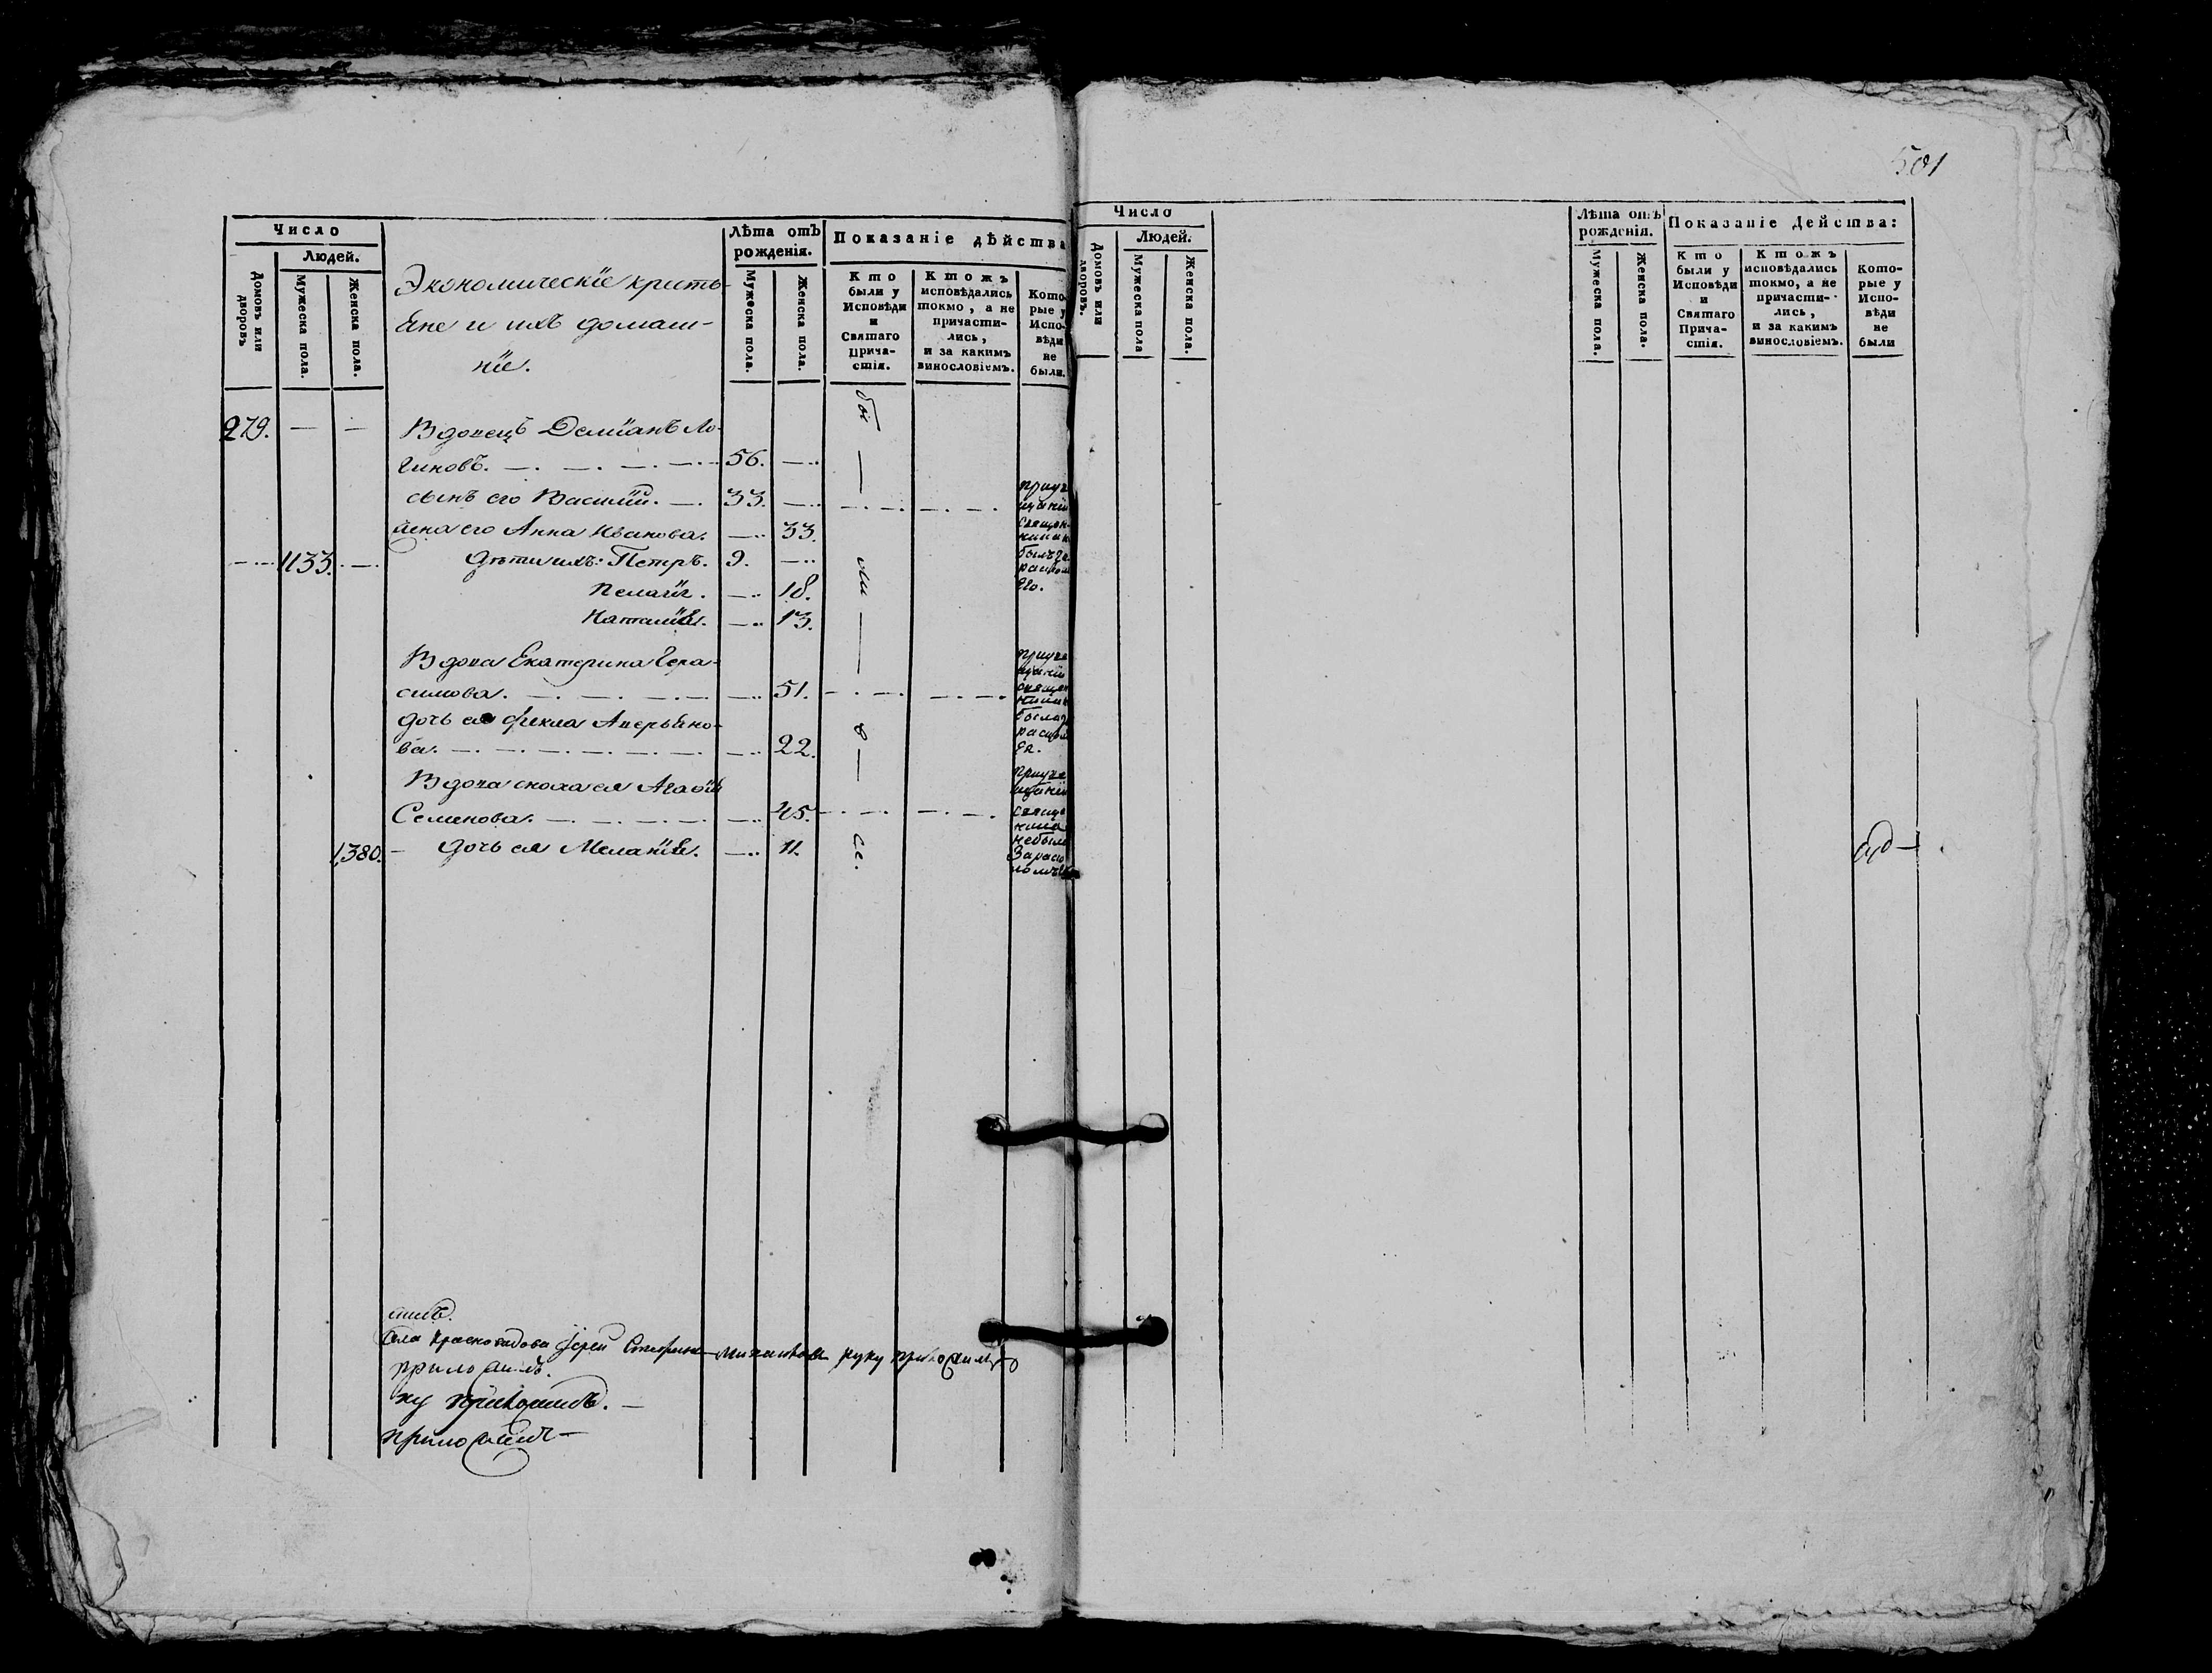 501
Число
Людей.
Домовъ или дворовъ
Мужеска пола.
Женска пола.
Экономическіе кресть-
яне и ихъ домаш-
ніе.
Лѣта отъ
рожденія.
Мужеска пола.
Женска пола.
Показаніе дѣйства
Кто
были у
Исповѣди
и
Святаго
Прича-
стія.
Ктожъ
исповѣдались
токмо, а не
причасти-
лись,
и за какимъ
винословіемъ.
Кото
рые у
Испо-
вѣди
не
были.
279. — — Вдовецъ Деміанъ Ло-
гиновъ. 56.
сынъ его Василій. 33.
жена его Анна Иванова. 33.
1133. дѣти ихъ: Петръ. 9.
Пелагія. 18.
Наталія. 13.
Вдова Екатерина Гера-
симова. 51.
дочь ея Фекла Аверьяно-
ва. 22.
Вдова сноха ея Агафія
Семенова. 45.
1,380. дочь ея Меланія. 11.
села Іерей руку приложилъ
приложилъ.
ку приложилъ.
приложилъ
Число
Людей.
Домовъ или дворовъ.
Мужеска пола
Женска пола.
Лѣта отъ
рожденія.
Мужеска пола.
Женска пола.
Показаніе Действа:
Кто
были у
Исповѣди
и
Святаго
Прича-
стія.
Ктожъ
исповѣдались
токмо, а не
причасти-
лись,
и за какимъ
винословіемъ.
Кото-
рые у
Испо-
вѣди
не
были